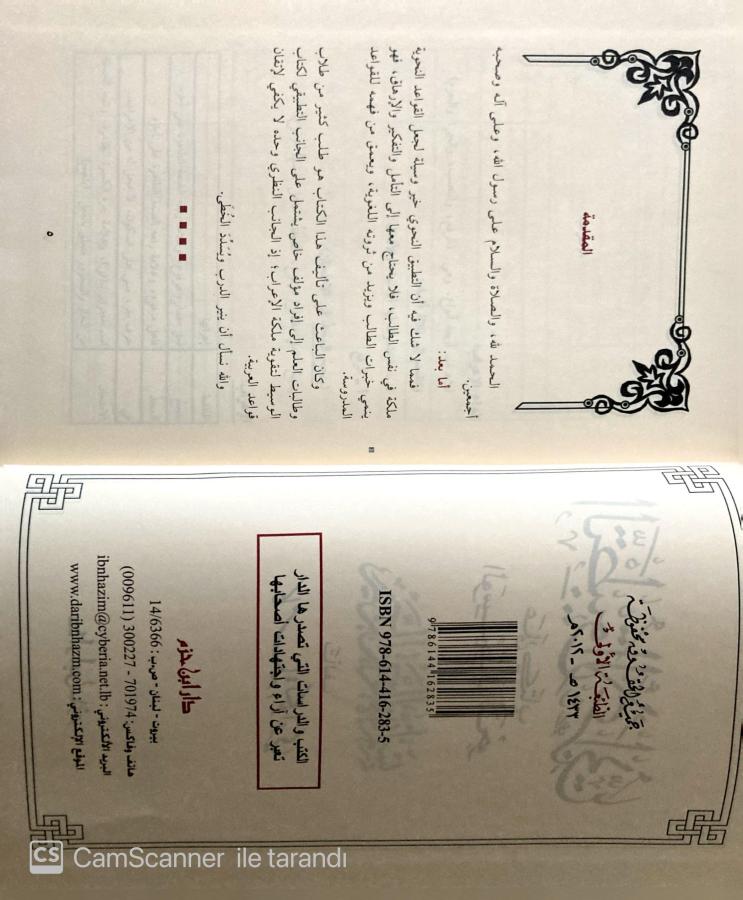 جميع الحقوق محفوظة
الطبعة الأولى
١٤٣٣ هـ - ٢٠١٢ م
9 786144 162835
ISBN 978-614-416-283-5
الكتب والدراسات التي تصدرها الدار
تعبر عن آراء واجتهادات أصحابها
دار ابن حزم
بيروت - لبنان - ص.ب : 14/6366
هاتف وفاكس: 701974 - 300227 (009611)
البريد الإلكتروني : ibnhazim@cyberia.net.lb
الموقع الإلكتروني : www.daribnhazm.com
المقدمة
الحمد لله، والصلاة والسلام على رسول الله، وعلى آله وصحبه
أجمعين.
أما بعد:
فمما لا شك فيه أن التطبيق النحوي خير وسيلة لجعل القواعد النحوية
ملكة في نفس الطالب، فلا يحتاج معها إلى التأمل والتفكير والإرهاق، فهو
ينمي خبرات الطالب ويزيد من ثروته اللغوية، ويعمق من فهمه للقواعد
المدروسة.
وكان الباعث على تأليف هذا الكتاب هو طلب كثير من طلاب
وطالبات العلم إلى إفراد مؤلف خاص يشتمل على الجانب التطبيقي لكتاب
الوسيط لتقوية ملكة الإعراب؛ إذ الجانب النظري وحده لا يكفي لإتقان
قواعد العربية.
والله نسأل أن ينير الدرب ويُسَدِّدَ الخُطَى.
٥
CS CamScanner ile tarandı